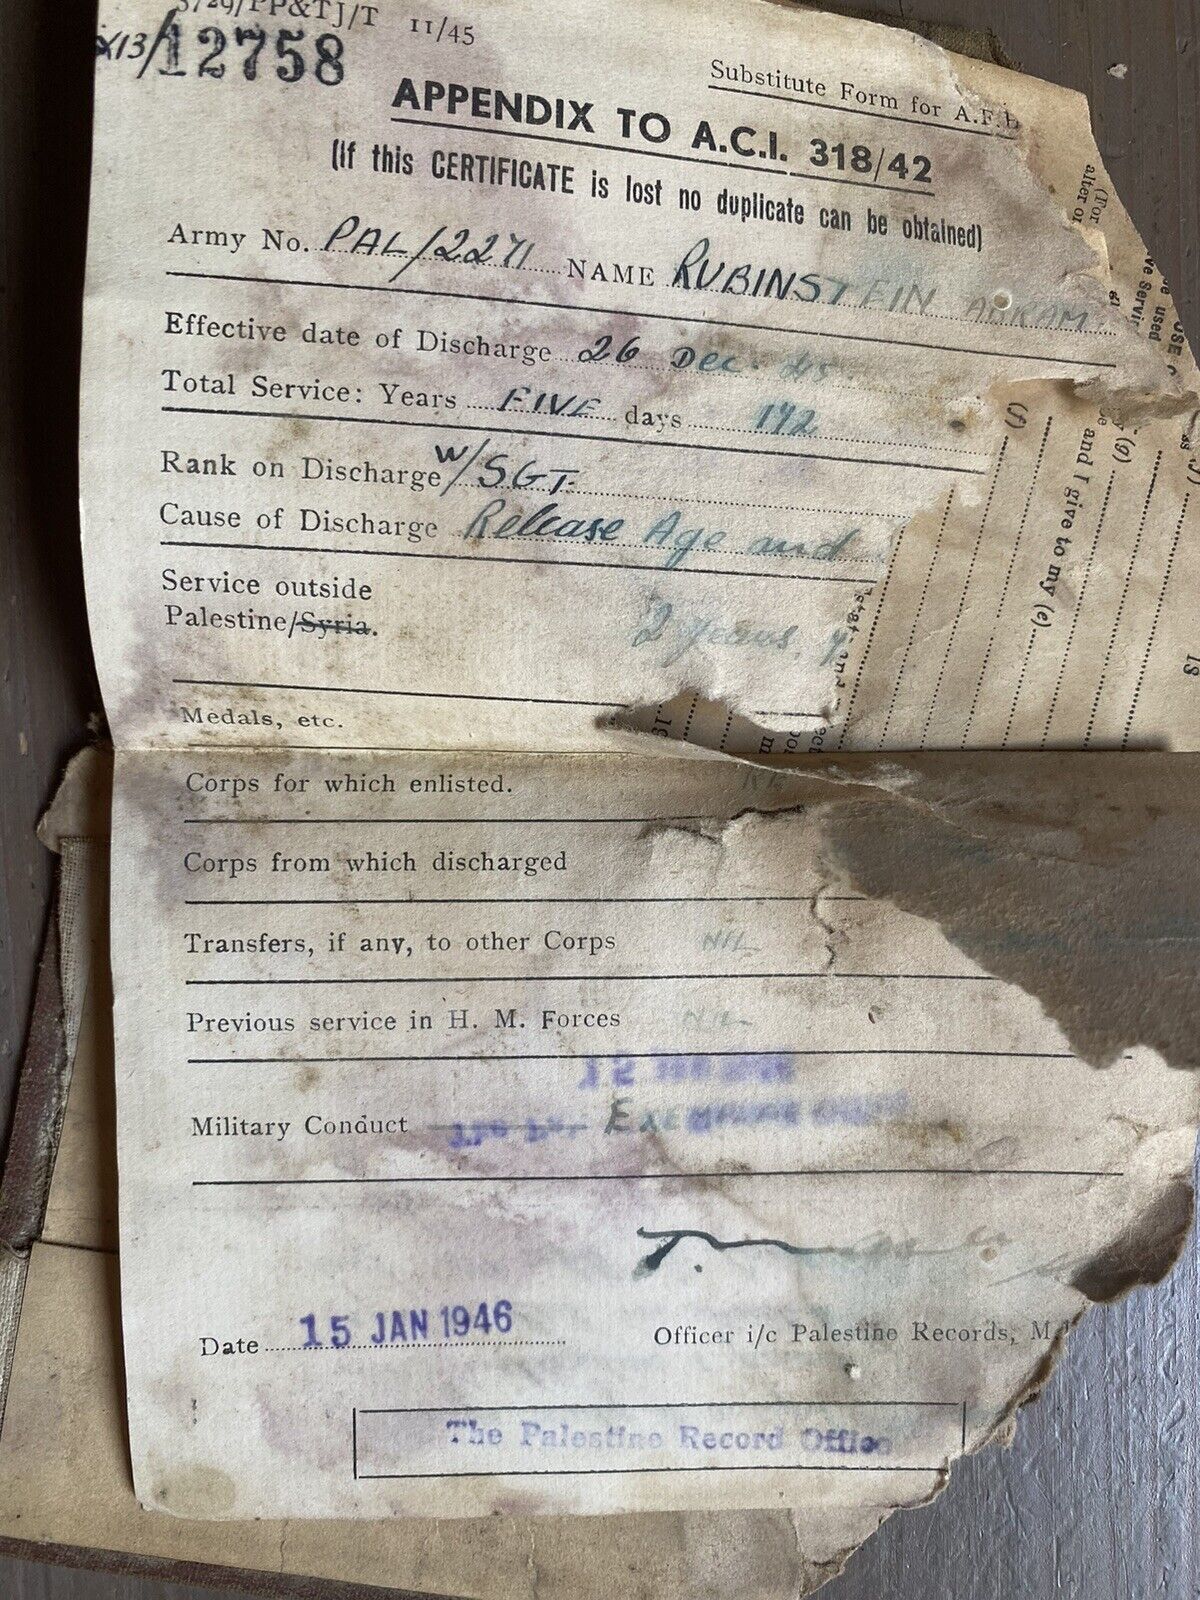 11/45
X13/12758
Substitute Form for A.F.B
APPENDIX TO A.C.I. 318/42
(If this CERTIFICATE is lost no duplicate can be obtained)
Army No. PAL/2271 NAME RUBINSTEIN ABRAM
Effective date of Discharge 26 Dec. 45
Total Service: Years FIVE days 172
Rank on Discharge W/SGT.
Cause of Discharge Release Age and
Service outside
Palestine/Syria. 2 years,
Medals, etc.
Corps for which enlisted.
Corps from which discharged
Transfers, if any, to other Corps NIL
Previous service in H. M. Forces NIL
Military Conduct
Date 15 JAN 1946
Officer i/c Palestine Records, M.
The Palestine Record Office
(For
alter or
used
(f)
(g)
e and I give to my (e)